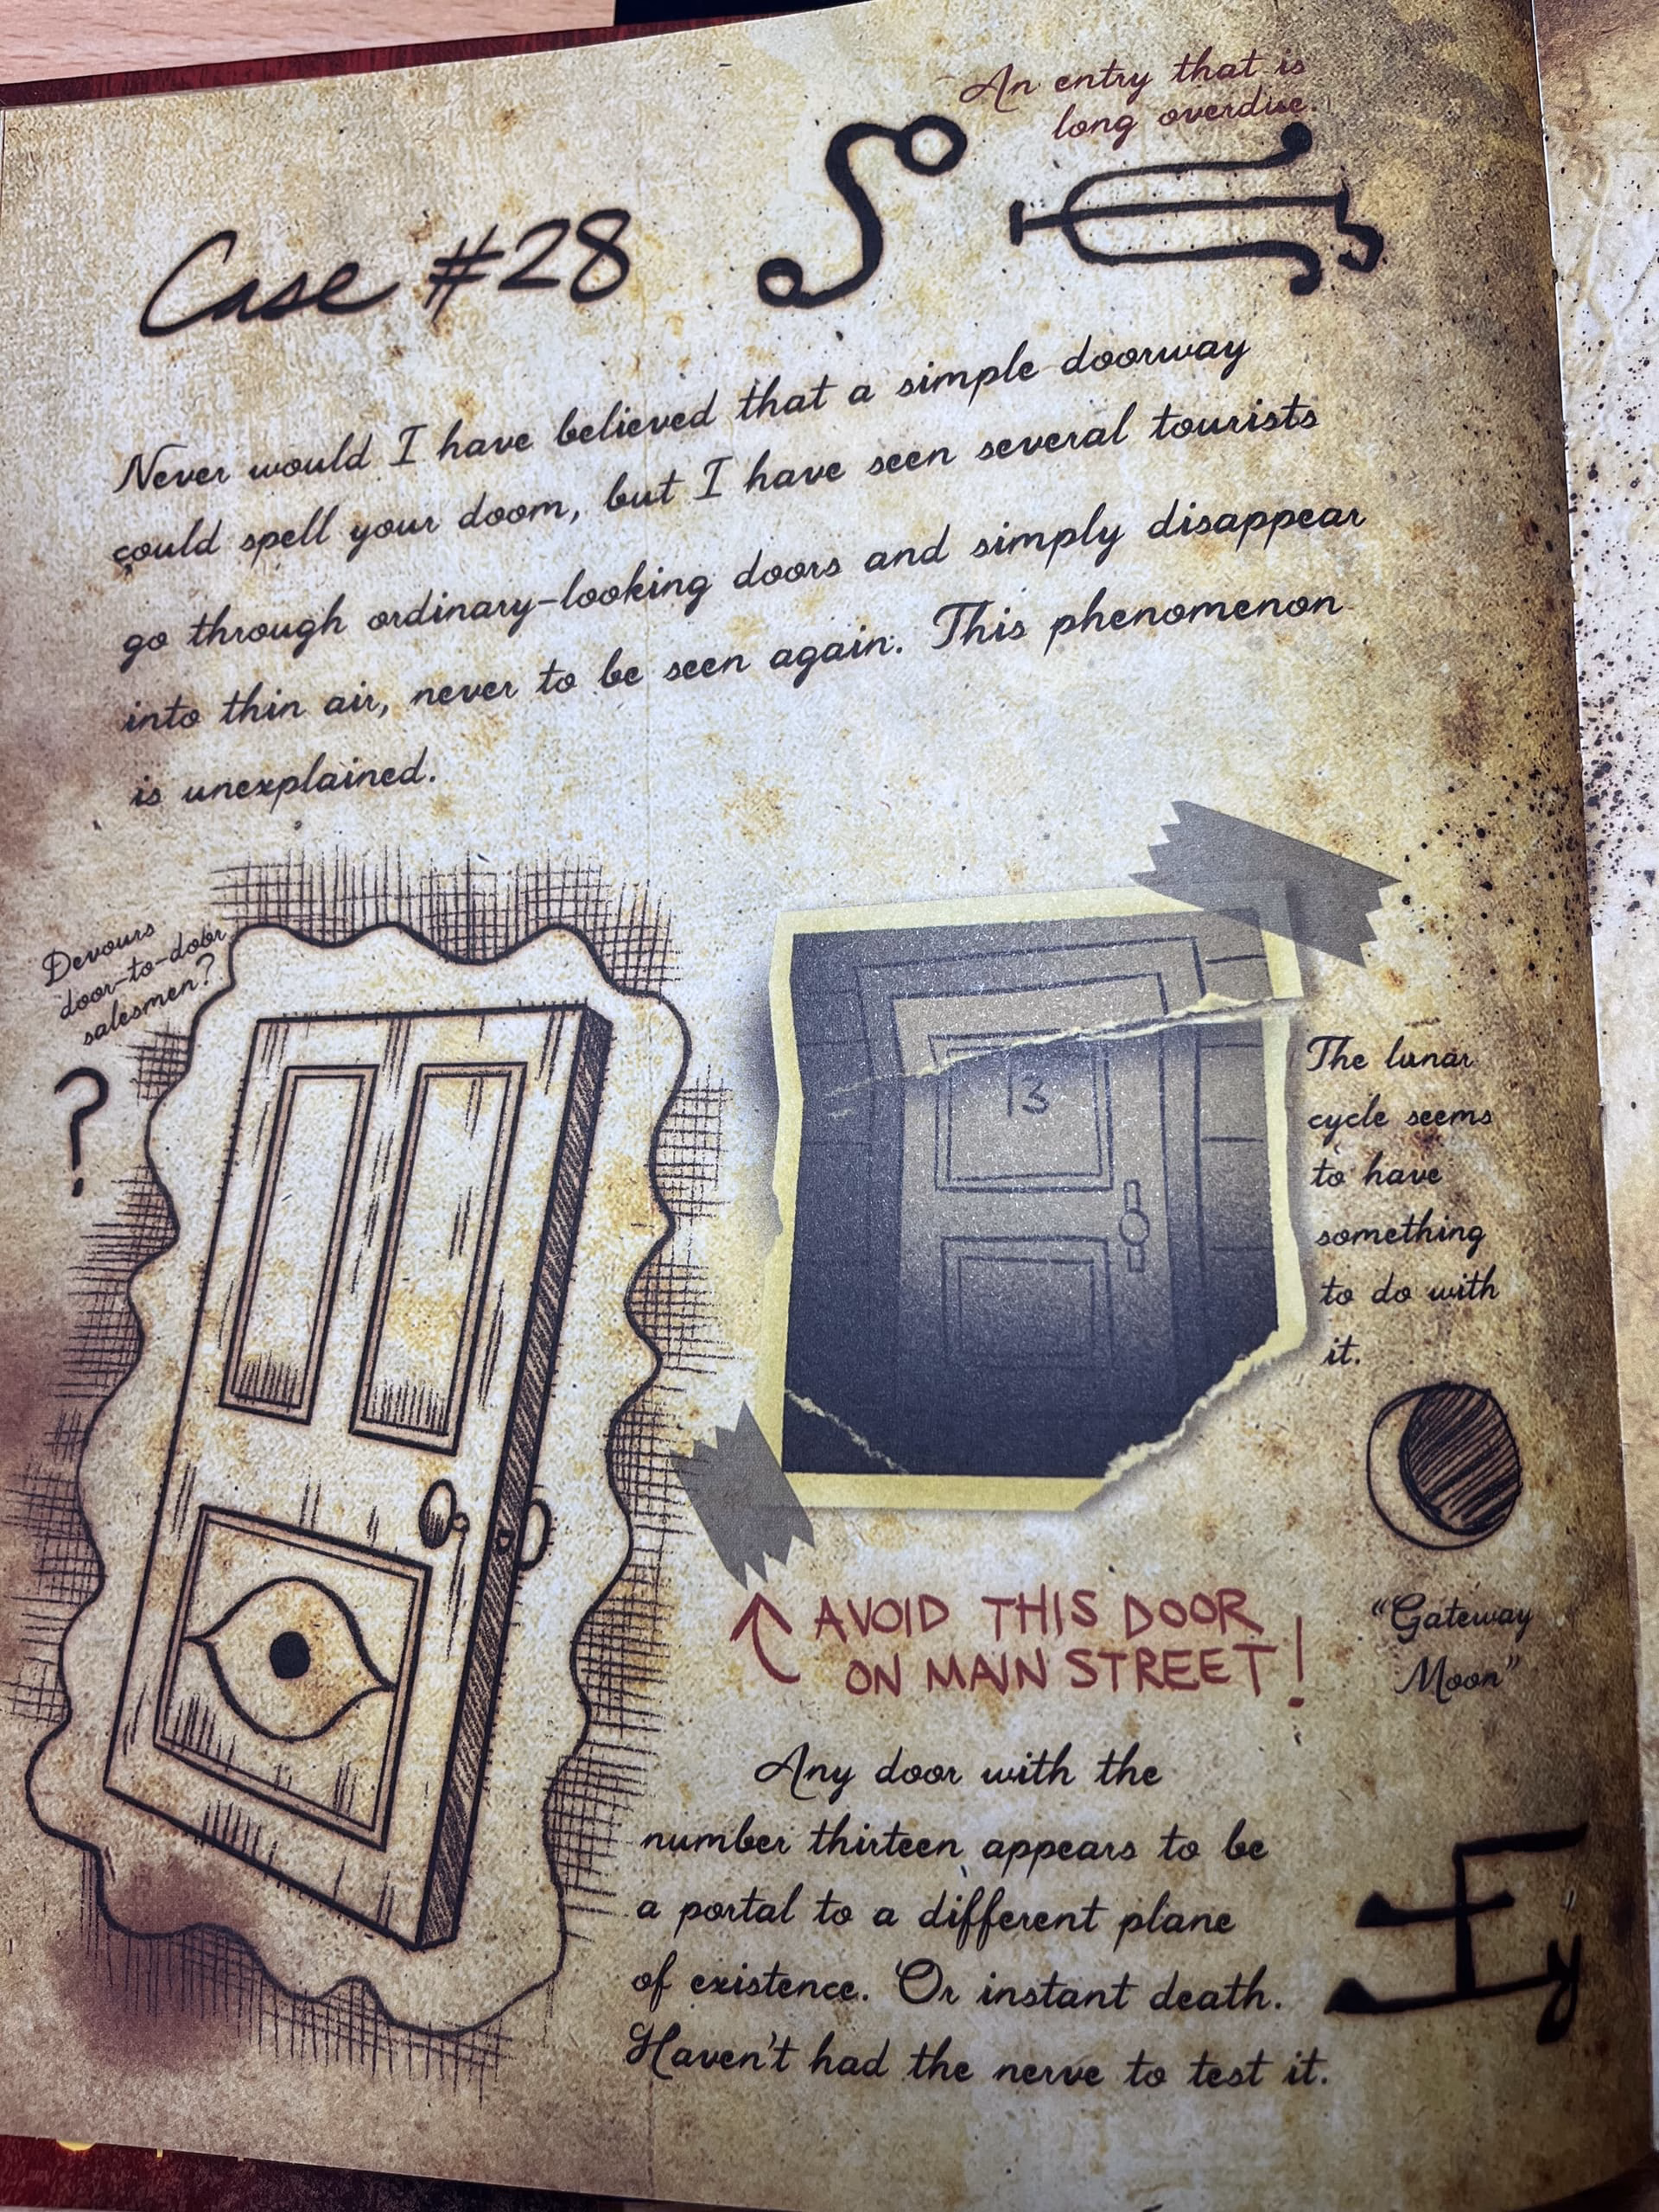 An entry that is
long overdue.
Case #28
Never would I have believed that a simple doorway
could spell your doom, but I have seen several tourists
go through ordinary-looking doors and simply disappear
into thin air, never to be seen again. This phenomenon
is unexplained.
Devours
door-to-door
salesmen?
?
13
The lunar
cycle seems
to have
something
to do with
it.
"Gateway
Moon"
AVOID THIS DOOR
ON MAIN STREET!
Any door with the
number thirteen appears to be
a portal to a different plane
of existence. Or instant death.
Haven't had the nerve to test it.